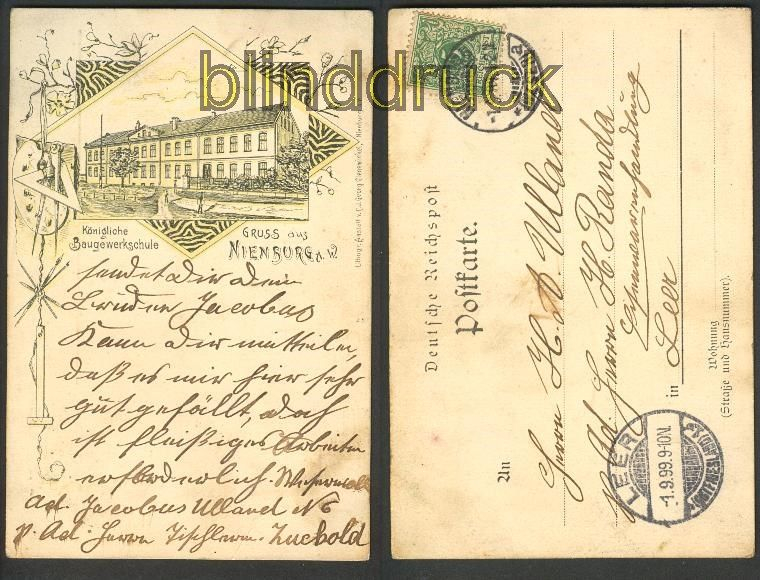 blinddruck
Königliche
Baugewerkschule
GRUSS aus
NIENBURG a. W.
sendet Dir Dein
Bruder Jacobus
Kann Dir mitteilen,
daß es mir hier sehr
gut gefällt, doch
ist fleißiges Arbeiten
erforderlich.
Ad. Jacobus Ulland
p. Ad. Herrn Tischlerm. Luebold
Deutsche Reichspost
Postkarte.
An
Herrn H. B. Ulland
p. Ad. Herrn H. Randa
Eisenwarenhandlung
in Leer
Wohnung
(Straße und Hausnummer).
LEER
-1.9.99.9-10N.
(OSTFRIESLAND)